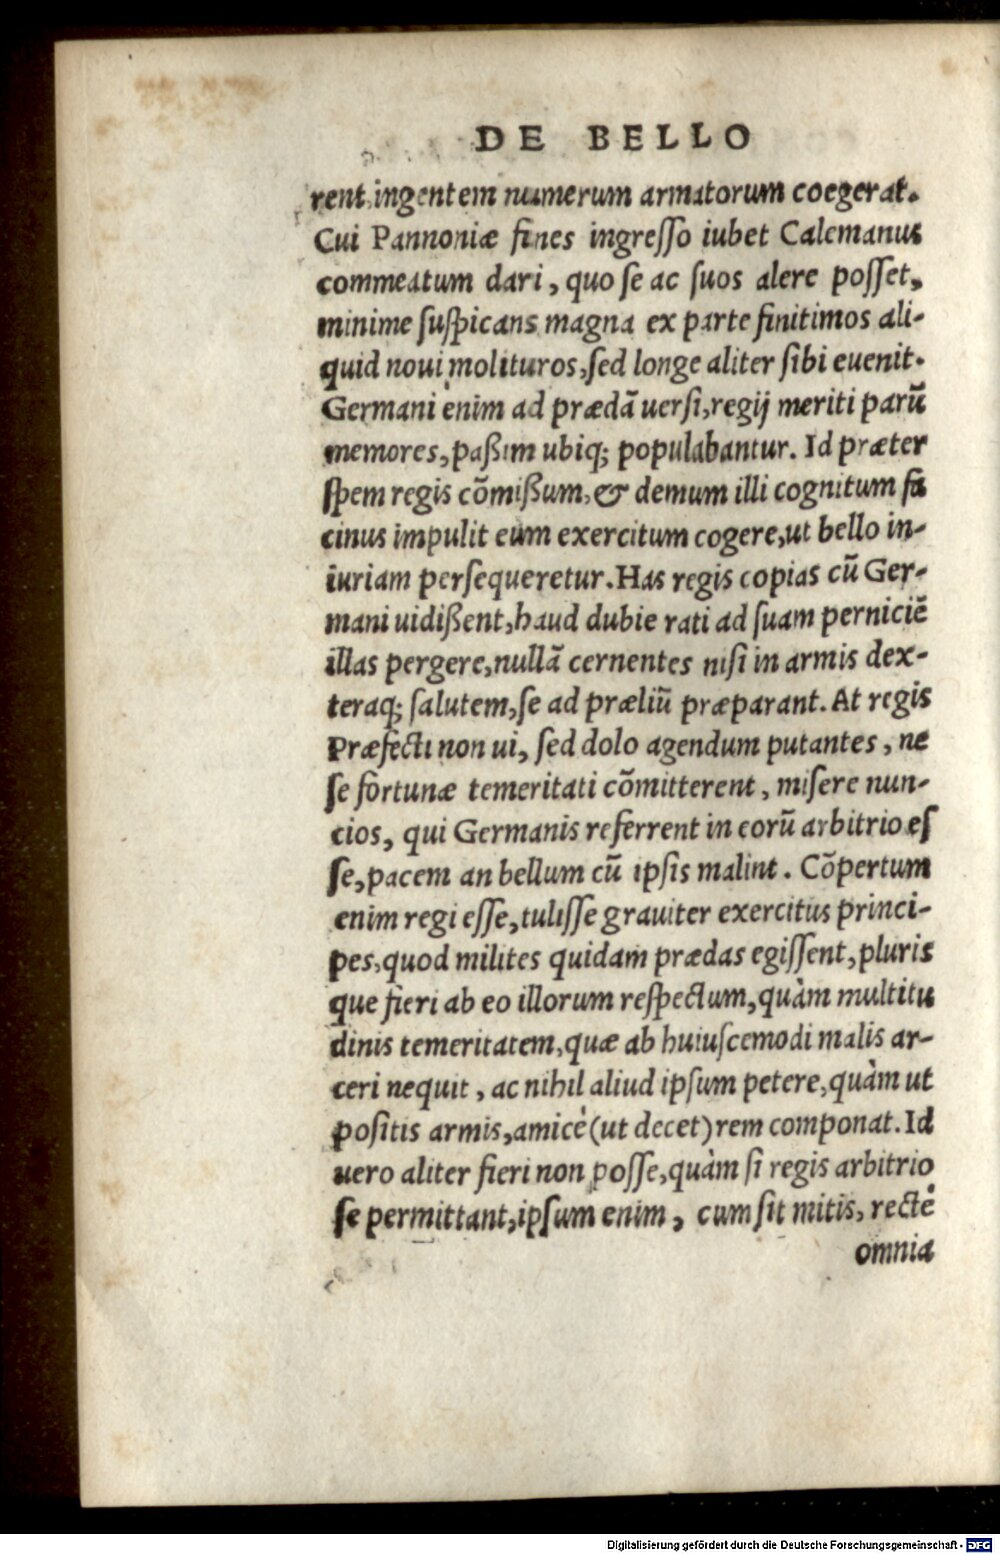 DE BELLO
rent ingentem numerum armatorum coegerat.
Cui Pannoniæ fines ingresso iubet Calemanus
commeatum dari, quo se ac suos alere posset,
minime suspicans magna ex parte finitimos ali-
quid noui molituros, sed longe aliter sibi euenit.
Germani enim ad prædā uersi, regij meriti parū
memores, paßim ubiq; populabantur. Id præter
spem regis cōmißum, & demum illi cognitum fa
cinus impulit eum exercitum cogere, ut bello in-
iuriam persequeretur. Has regis copias cū Ger-
mani uidißent, haud dubie rati ad suam perniciē
illas pergere, nullā cernentes nisi in armis dex-
teraq; salutem, se ad præliū præparant. At regis
Præfecti non ui, sed dolo agendum putantes, ne
se fortunæ temeritati cōmitterent, misere nun-
cios, qui Germanis referrent in eorū arbitrio es
se, pacem an bellum cū ipsis malint. Cōpertum
enim regi esse, tulisse grauiter exercitus princi-
pes, quod milites quidam prædas egissent, pluris
que fieri ab eo illorum respectum, quàm multitu
dinis temeritatem, quæ ab huiuscemodi malis ar-
ceri nequit, ac nihil aliud ipsum petere, quàm ut
positis armis, amicè (ut decet) rem componat. Id
uero aliter fieri non posse, quàm si regis arbitrio
se permittant, ipsum enim, cum sit mitis, rectè
omnia
Digitalisierung gefördert durch die Deutsche Forschungsgemeinschaft - DFG